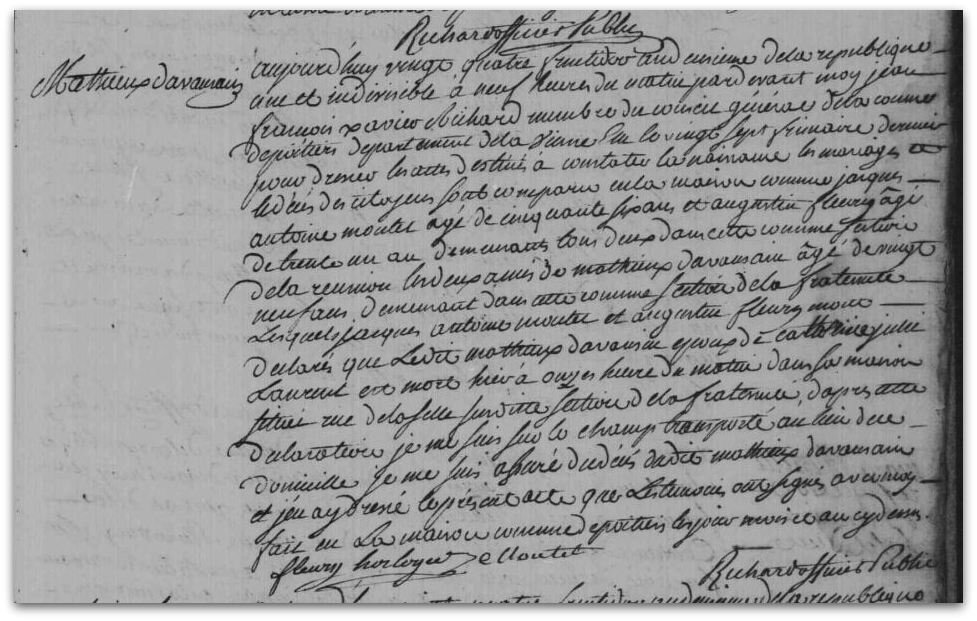 Richard officier Public
Mathieux davansain
aujourd'huy vingt quatre fructidor lan deuxieme de la republique
une et indivisible à neuf heures du matin pardevant moy jean
francois xavier Richard membre du conseil général de la commune
de poitiers departement de la vienne Elu le vingt sept frimaire dernier
pour dresser les actes destinés à constater la naissance les mariages et
le décès des citoyens sont comparu en la maison commune jacques
antoine moutet agé de cinquante six ans et augustin fleury âgé
de trente un an, demeurants tous deux dans cette commune section
de la reunion les deux amis de mathieux davansain âgé de vingt
neuf ans, demeurant dans cette commune section de la fraternité
Lesquels jacques antoine moutet et augustin fleury mont
declarés que Ledit mathieux davansain epoux de catherine julie
Laurent est mort hier à onzes heure du matin dans sa maison
situé rue de la selle surditte section de la fraternité, d'apres cette
declaration je me suis sur le champ transporté au lieu de ce
domicille je me suis assuré du décès dudit mathieux davansain
et j'en ay dressé le présent acte que Les temoins ont signés avec moy
fait en La maison commune de poitiers les jour mois et an cy dessus
fleury horloger Moutet
Richard officier Public
de la republique